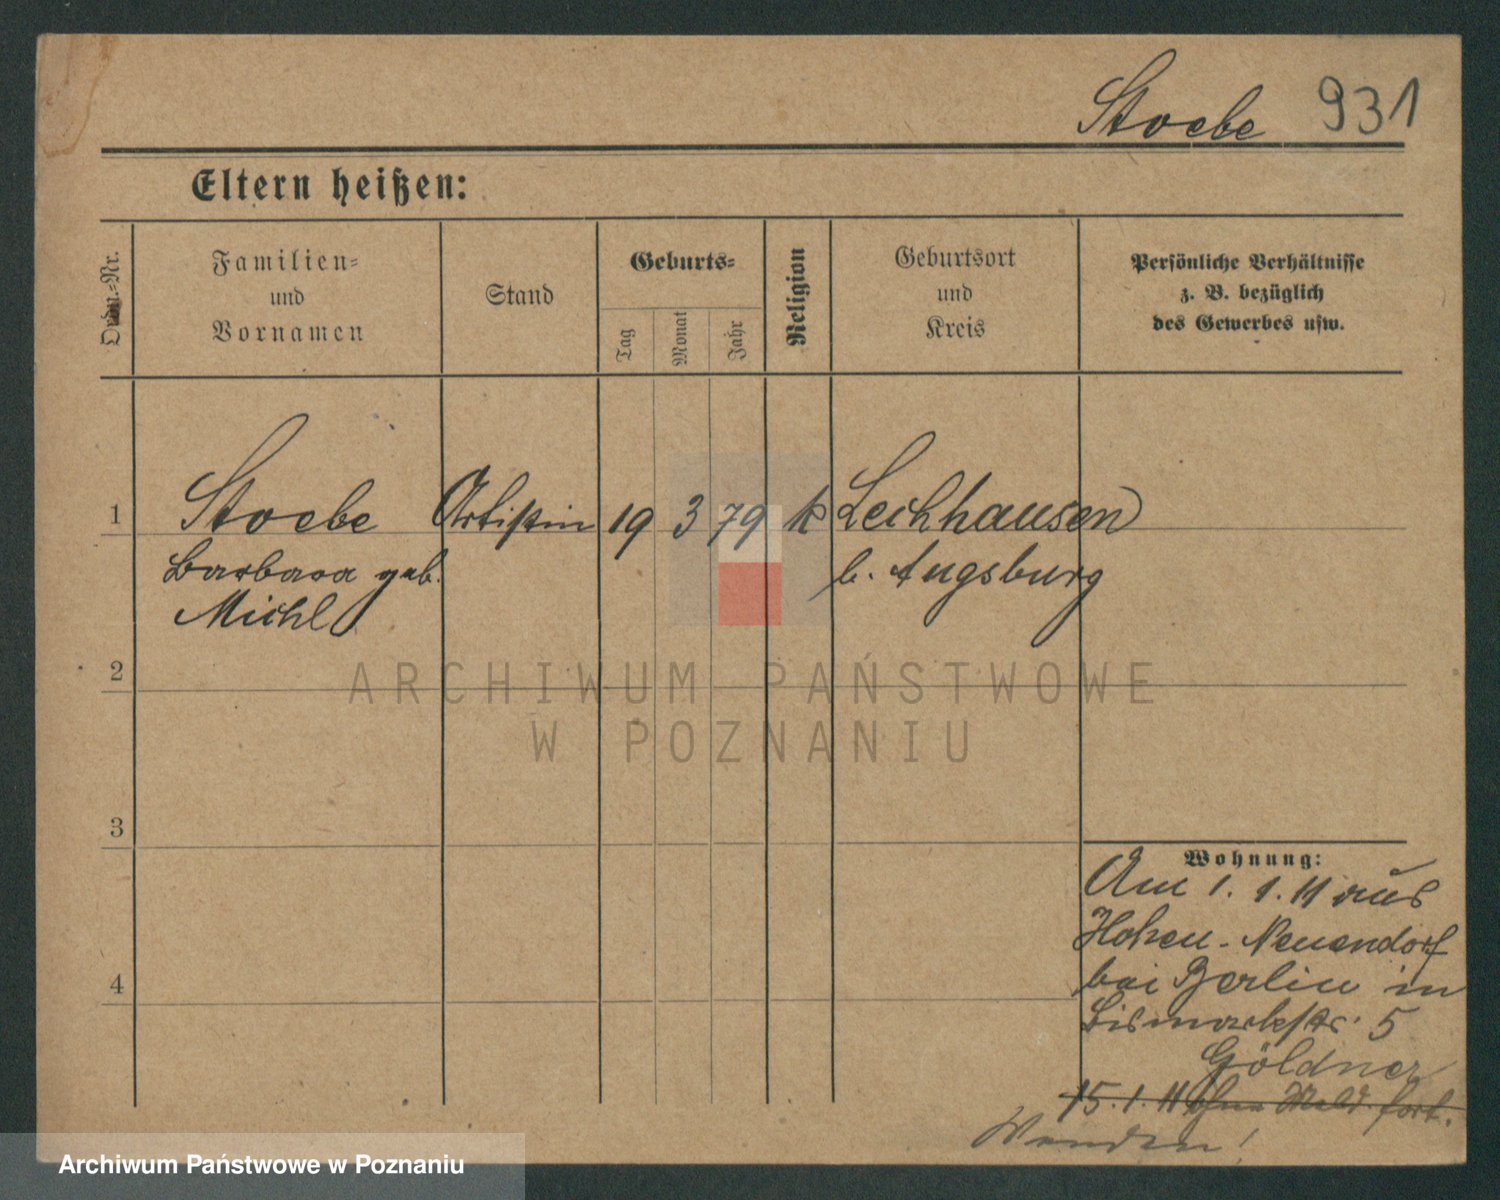 Stoebe 931
Eltern heißen:
Ordn.-Nr.
Familien-
und
Vornamen
Stand
Geburts-
Tag
Monat
Jahr
Religion
Geburtsort
und
Kreis
Persönliche Verhältnisse
z. B. bezüglich
des Gewerbes usw.
1 Stoebe Artistin 19 3 79 k Lechhausen
Barbara geb. b. Augsburg
Michl
2
ARCHIWUM PAŃSTWOWE
W POZNANIU
3
Wohnung:
Am 1. 1. 11 aus
Hohen-Neuendorf
bei Berlin in
4
Bismarckstr. 5
Göldner
15. 1. 11 ohne Meld. fort.
Wenden!
Archiwum Państwowe w Poznaniu